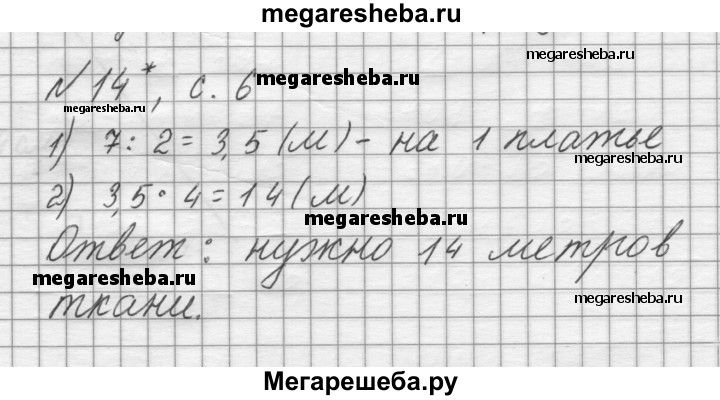 megaresheba.ru
№ 14*, с. 6
megaresheba.ru
megaresheba.ru
1) 7 : 2 = 3,5 (м) - на 1 платье
megaresheba.ru
2) 3,5 · 4 = 14 (м)
megaresheba.ru
Ответ: нужно 14 метров
megaresheba.ru
ткани.
megaresheba.ru
Мегарешеба.ру